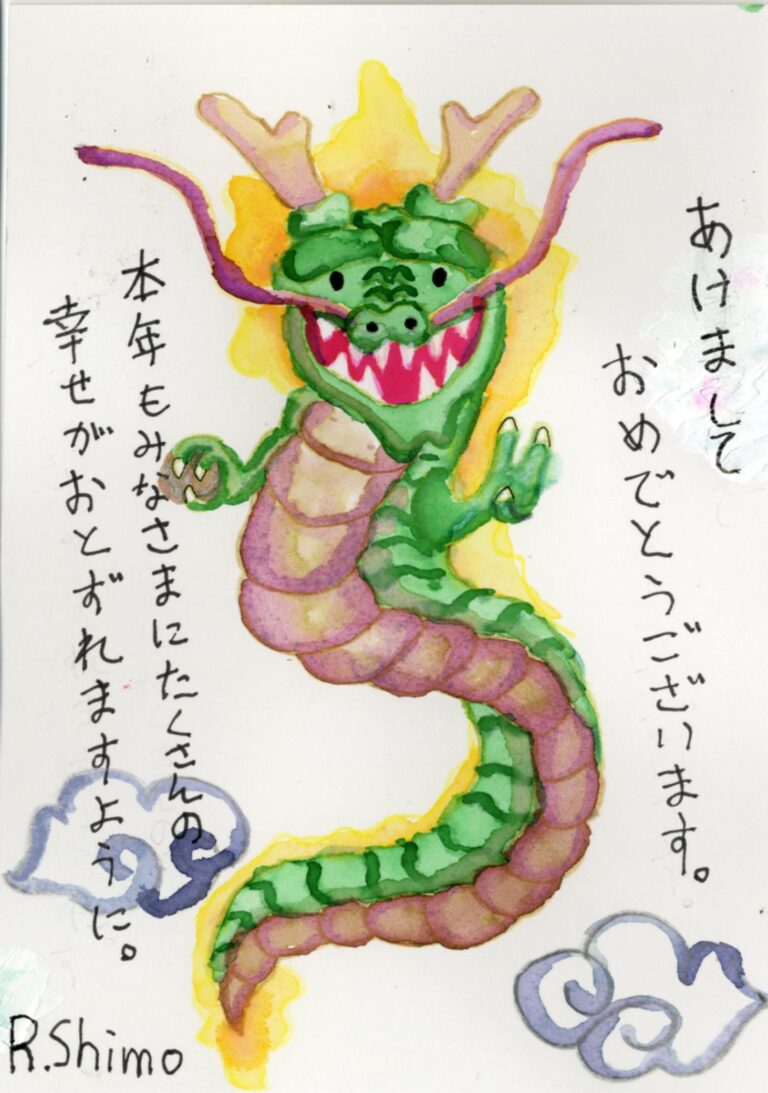 あけまして
おめでとうございます。
本年もみなさまにたくさんの
幸せがおとずれますように。
R.Shimo